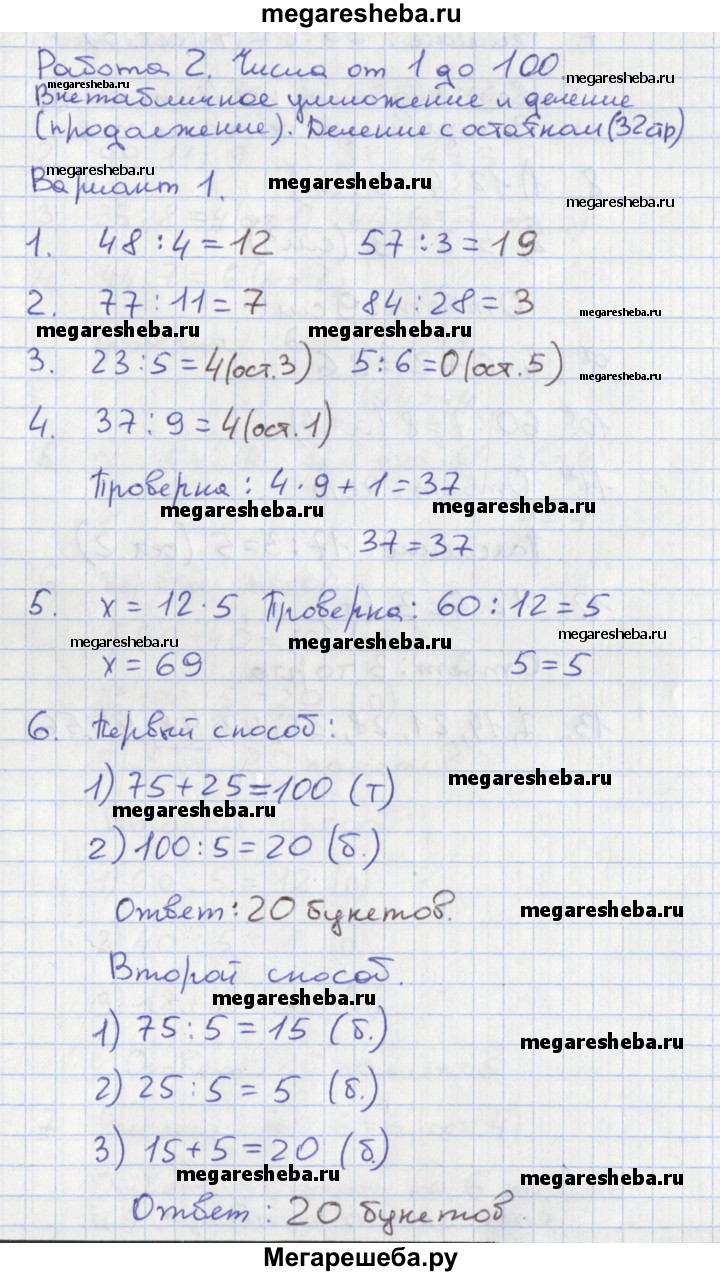 megaresheba.ru
Работа 2. Числа от 1 до 100.
megaresheba.ru megaresheba.ru
Внетабличное умножение и деление
(продолжение). Деление с остатком (32 стр)
megaresheba.ru megaresheba.ru megaresheba.ru
Вариант 1.
1. 48 : 4 = 12 57 : 3 = 19
2. 77 : 11 = 7 84 : 28 = 3 megaresheba.ru
megaresheba.ru megaresheba.ru
3. 23 : 5 = 4 (ост. 3) 5 : 6 = 0 (ост. 5) megaresheba.ru
4. 37 : 9 = 4 (ост. 1)
Проверка : 4 · 9 + 1 = 37
megaresheba.ru megaresheba.ru
37 = 37
5. x = 12 · 5 Проверка : 60 : 12 = 5
megaresheba.ru megaresheba.ru megaresheba.ru
x = 69 5 = 5
6. Первый способ :
1) 75 + 25 = 100 (т) megaresheba.ru
megaresheba.ru
2) 100 : 5 = 20 (б.)
Ответ : 20 букетов. megaresheba.ru
Второй способ.
megaresheba.ru
1) 75 : 5 = 15 (б.) megaresheba.ru
2) 25 : 5 = 5 (б.)
3) 15 + 5 = 20 (б.)
megaresheba.ru megaresheba.ru
Ответ : 20 букетов.
Мегарешеба.ру